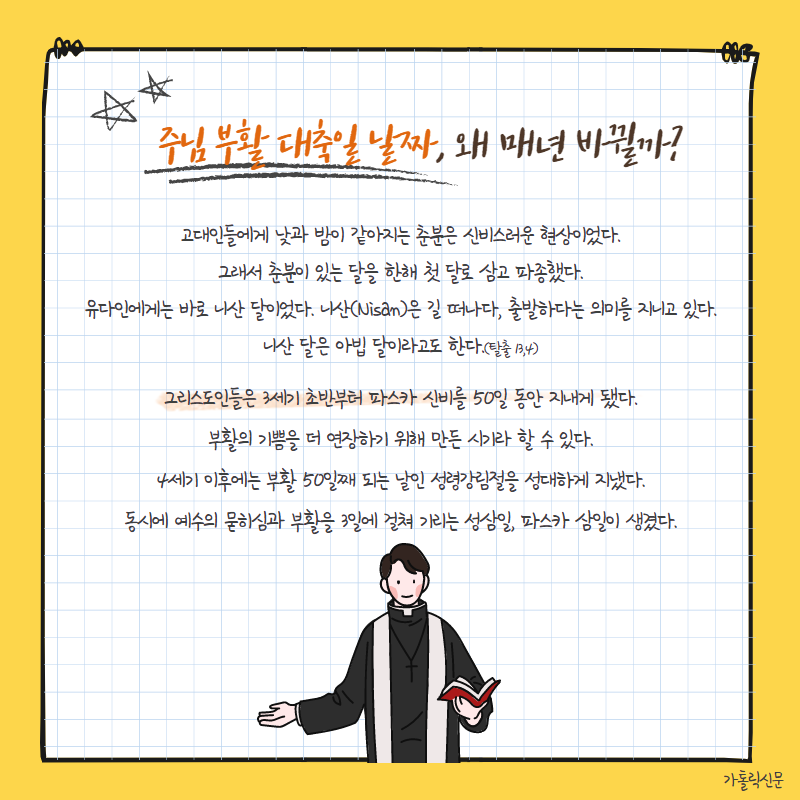 주님 부활 대축일 날짜, 왜 매년 바뀔까?
고대인들에게 낮과 밤이 같아지는 춘분은 신비스러운 현상이었다.
그래서 춘분이 있는 달을 한해 첫 달로 삼고 파종했다.
유다인에게는 바로 니산 달이었다. 니산(Nisan)은 길 떠나다, 출발하다는 의미를 지니고 있다.
니산 달은 아빕 달이라고도 한다.(탈출 13,4)
그리스도인들은 3세기 초반부터 파스카 신비를 50일 동안 지내게 됐다.
부활의 기쁨을 더 연장하기 위해 만든 시기라 할 수 있다.
4세기 이후에는 부활 50일째 되는 날인 성령강림절을 성대하게 지냈다.
동시에 예수의 묻히심과 부활을 3일에 걸쳐 기리는 성삼일, 파스카 삼일이 생겼다.
가톨릭신문